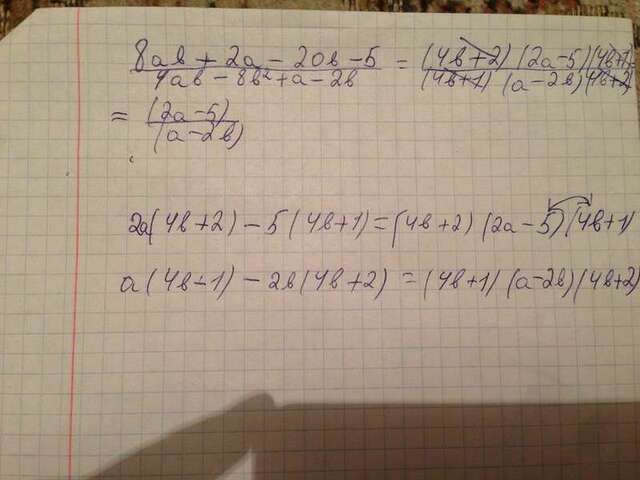 (8ab + 2a - 20b - 5)/(4ab - 8b² + a - 2b) = ((4b+2)(2a-5)(4b+1))/((4b+1)(a-2b)(4b+2))
= (2a-5)/(a-2b)
2a(4b+2) - 5(4b+1) = (4b+2)(2a-5)(4b+1)
a(4b+1) - 2b(4b+2) = (4b+1)(a-2b)(4b+2)